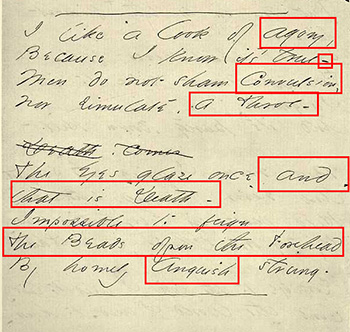 I like a look of Agony,
Because I know it's true -
Men do not sham Convulsion,
Nor simulate, a Throe -
Death, Comes
The Eyes glaze once, and
that is Death -
Impossible to feign
The Beads upon the Forehead
By homely Anguish strung.